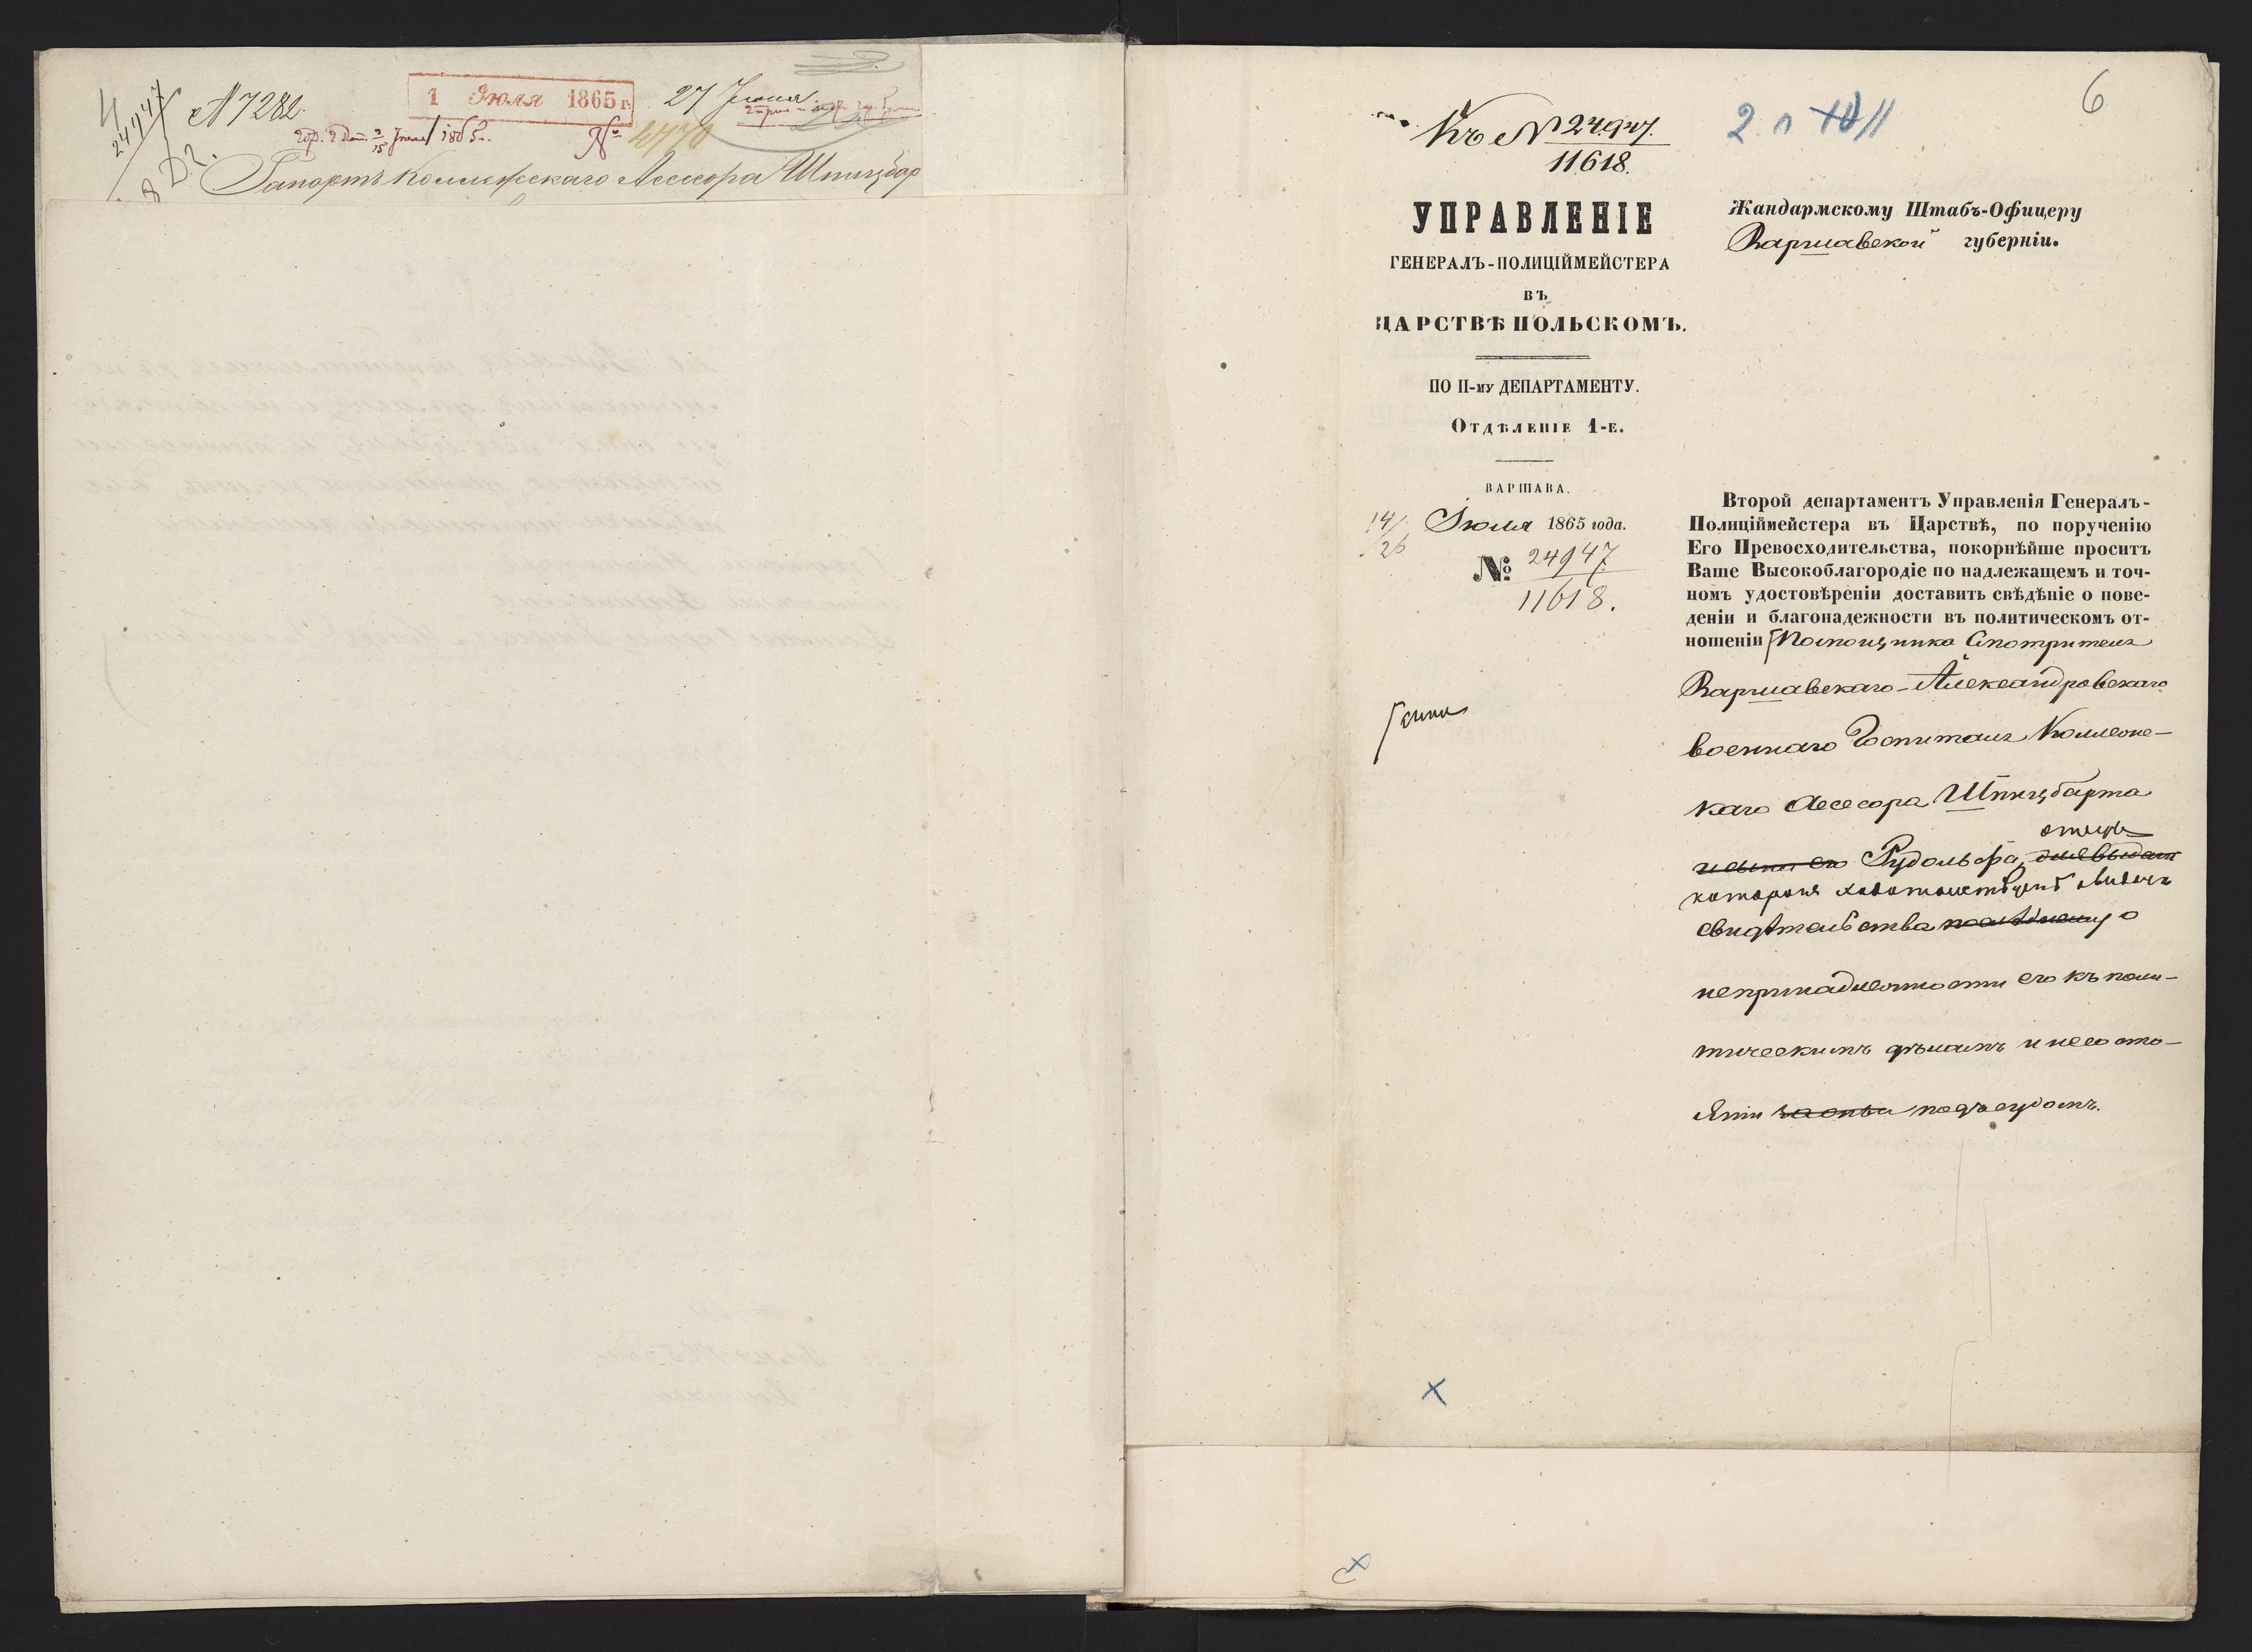 4
24947
№ 7282.
1 Июля 1865 г.
27 Июня
№ 4770
Рапортъ Коллежскаго Асессора Шпицбар
6
Къ № 24947.
11618.
2 п
УПРАВЛЕНІЕ
ГЕНЕРАЛЪ-ПОЛИЦІЙМЕЙСТЕРА
ВЪ
ЦАРСТВѢ ПОЛЬСКОМЪ.
ПО II-му ДЕПАРТАМЕНТУ.
Отдѣленіе 1-е.
ВАРШАВА.
14/26 Іюля 1865 года.
№ 24947
11618.
Жандармскому Штабъ-Офицеру
Варшавской губерніи.
Второй департаментъ Управленія Генералъ-
Полиціймейстера въ Царствѣ, по порученію
Его Превосходительства, покорнѣйше проситъ
Ваше Высокоблагородіе по надлежащемъ и точ-
номъ удостовѣреніи доставить свѣдѣніе о пове-
деніи и благонадежности въ политическомъ от-
ношеніи Помощника Смотрителя
Варшавскаго-Александровскаго
сына
военнаго Госпиталя Коллежс-
каго Асесора Шпицбарта
отецъ
и сына его Рудольфа, для выдачи
котораго ходатайствуетъ о выдачѣ
свидѣтельства послѣднему о
непринадлежности его къ поли-
тическимъ дѣламъ и несосто-
яніи подъ судомъ.